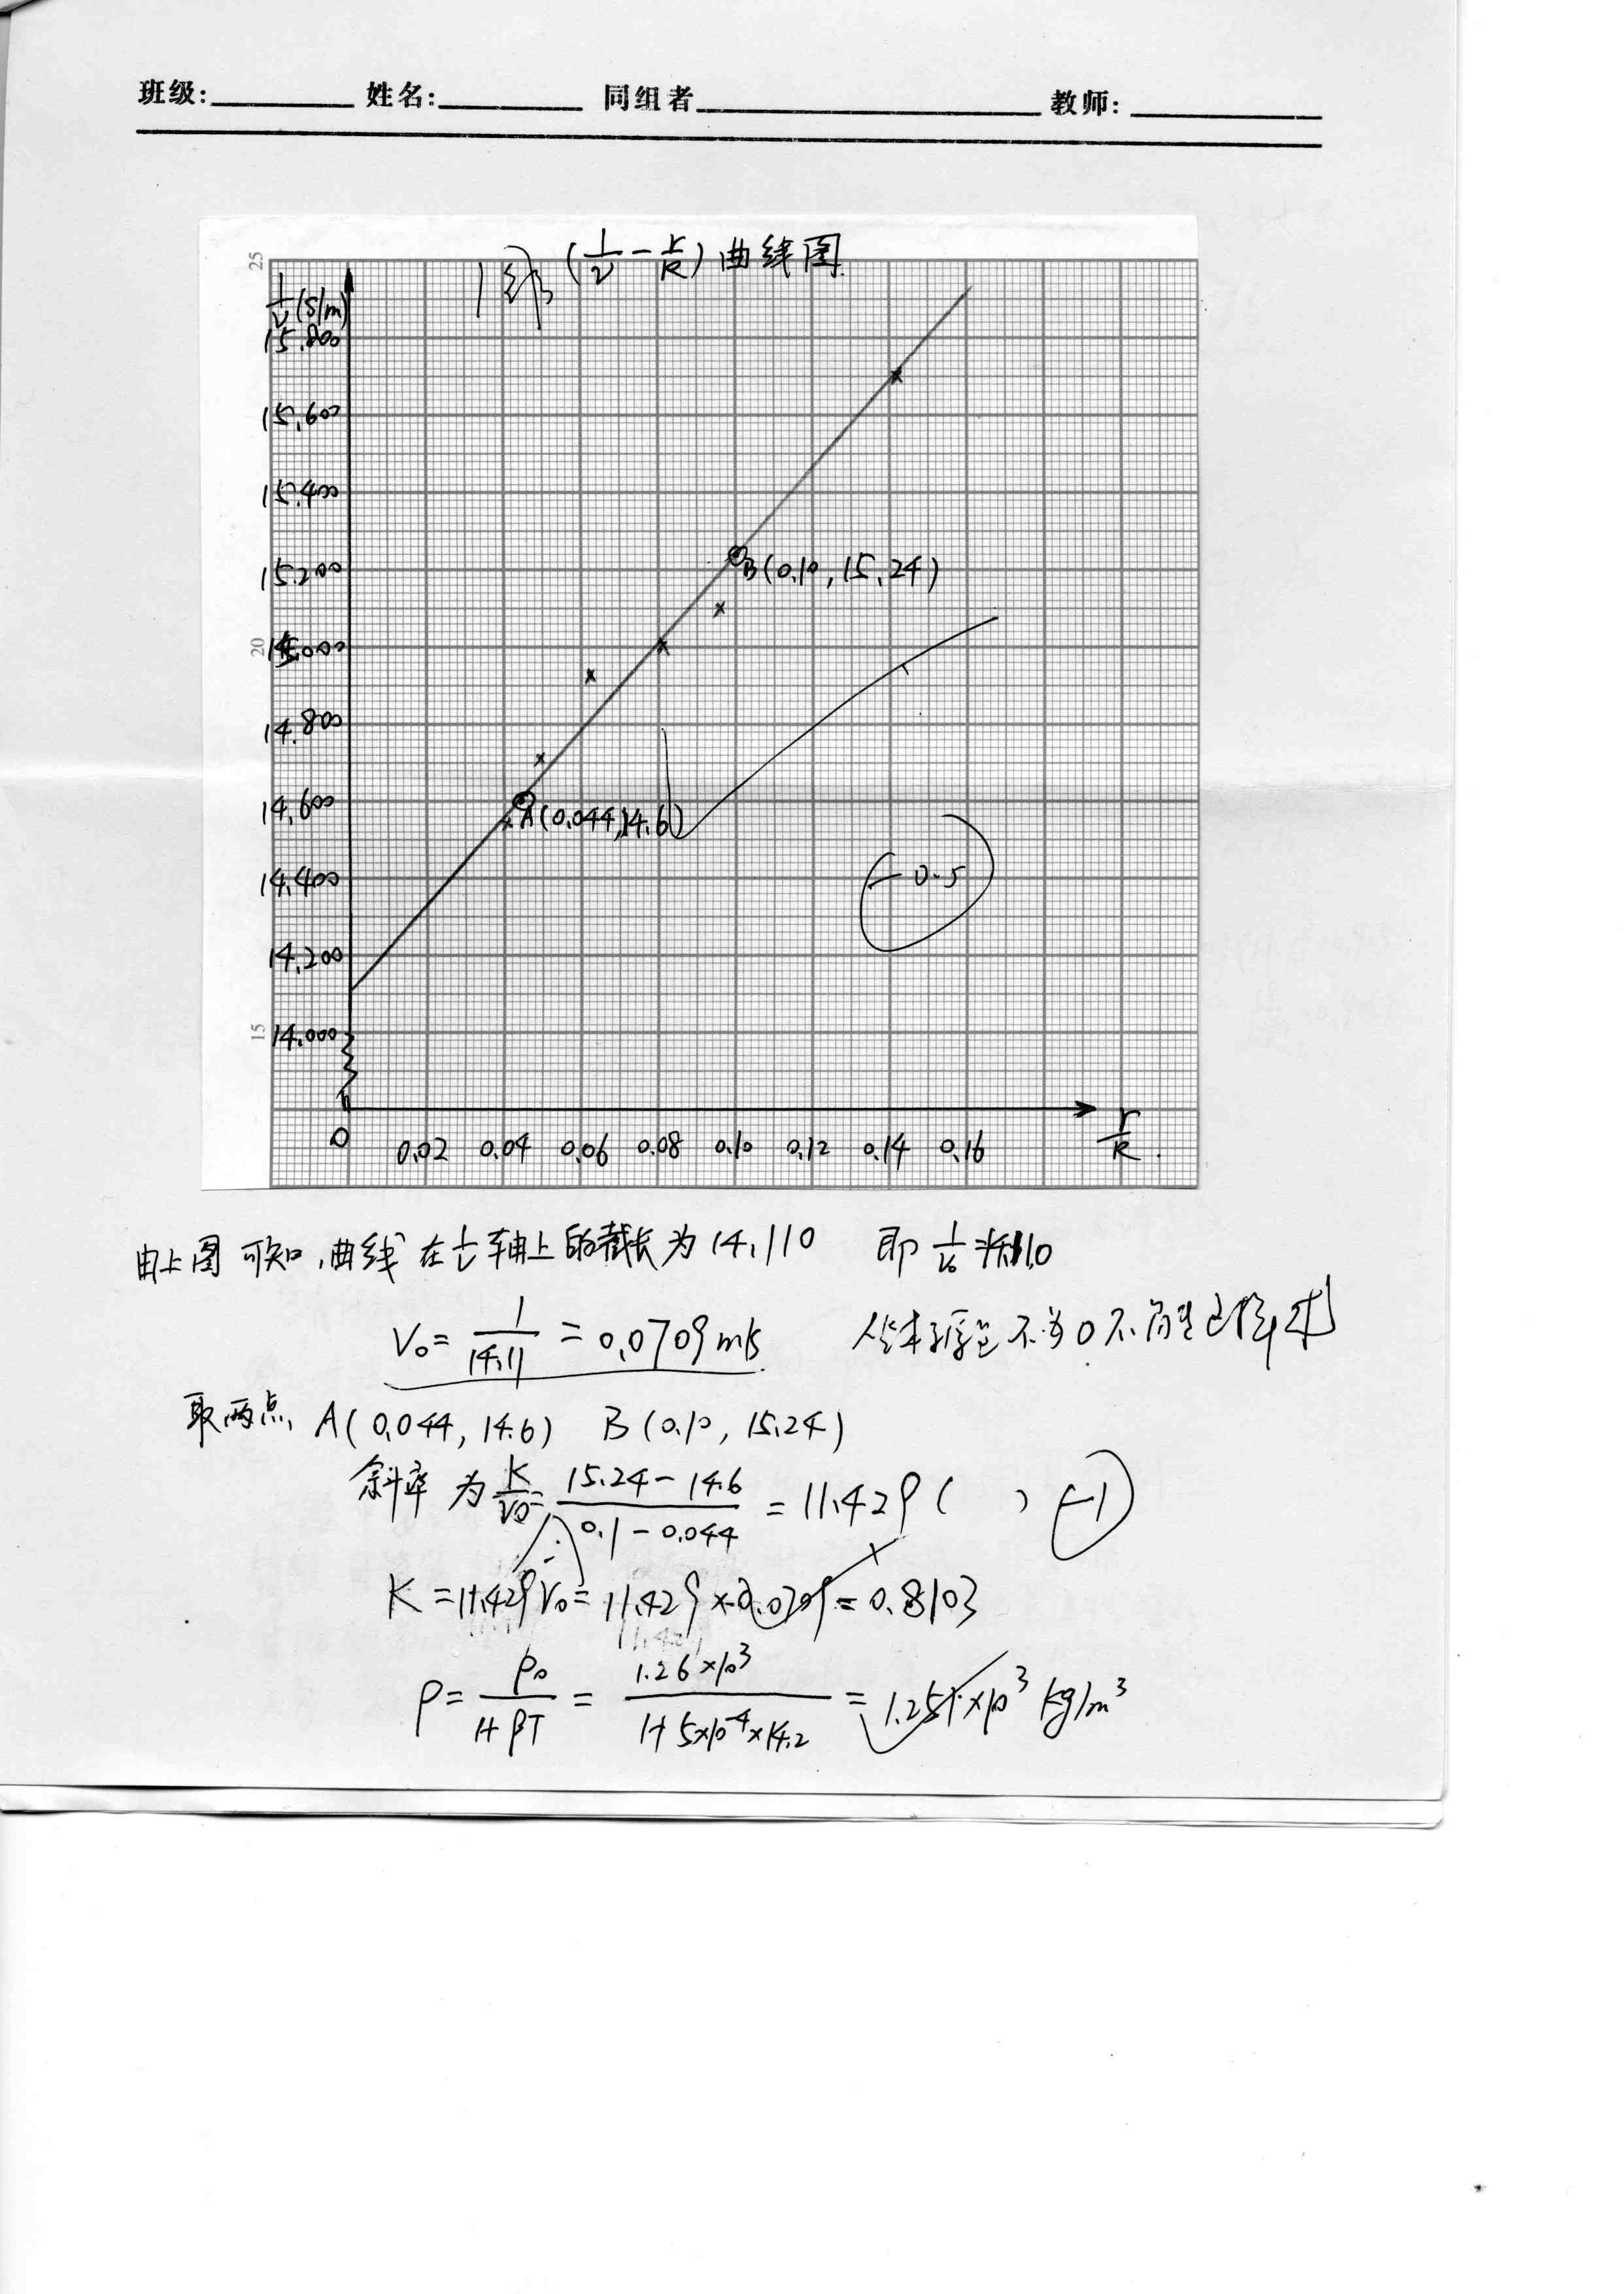 班级: 姓名: 同组者 教师:
(1/v - r/R) 曲线图
25
1/v (s/m)
15.800
15.600
15.400
15.200
B(0.10, 15.24)
20
15.000
14.800
14.600
A(0.044, 14.6)
14.400
-0.5
14.200
15
14.000
0 0.02 0.04 0.06 0.08 0.10 0.12 0.14 0.16 r/R
由上图可知,曲线在 1/v 轴上的截长为 14.110 即 1/v₀
V₀ = 1/14.11 = 0.0709 m/s
取两点 A(0.044, 14.6) B(0.10, 15.24)
斜率为 K/V₀ = (15.24 - 14.6)/(0.1 - 0.044) = 11.429 ( ) -1
K = 11.429 V₀ = 11.429 × 0.0709 = 0.8103
ρ = ρ₀/(1+βT) = 1.26×10³/(1+5×10⁻⁴×14.2) = 1.251×10³ kg/m³